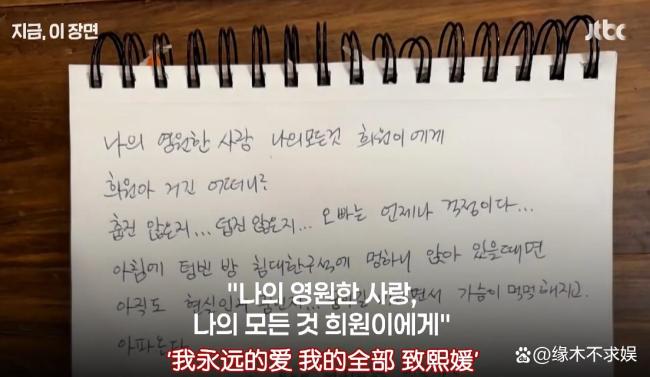 지금, 이 장면
jtbc
나의 영원한 사랑 나의모든것 희원이에게
희원아 거긴 어떠니?
춥진 않은지... 덥진 않은지... 오빠는 언제나 걱정이다...
아침에 텅빈 방 침대한구석에 멍하니 앉아 있을때면
아직도 가슴이 먹먹해지고.
아파온다
"나의 영원한 사랑,
나의 모든 것 희원이에게"
‘我永远的爱 我的全部 致熙媛’
@缘木不求娱